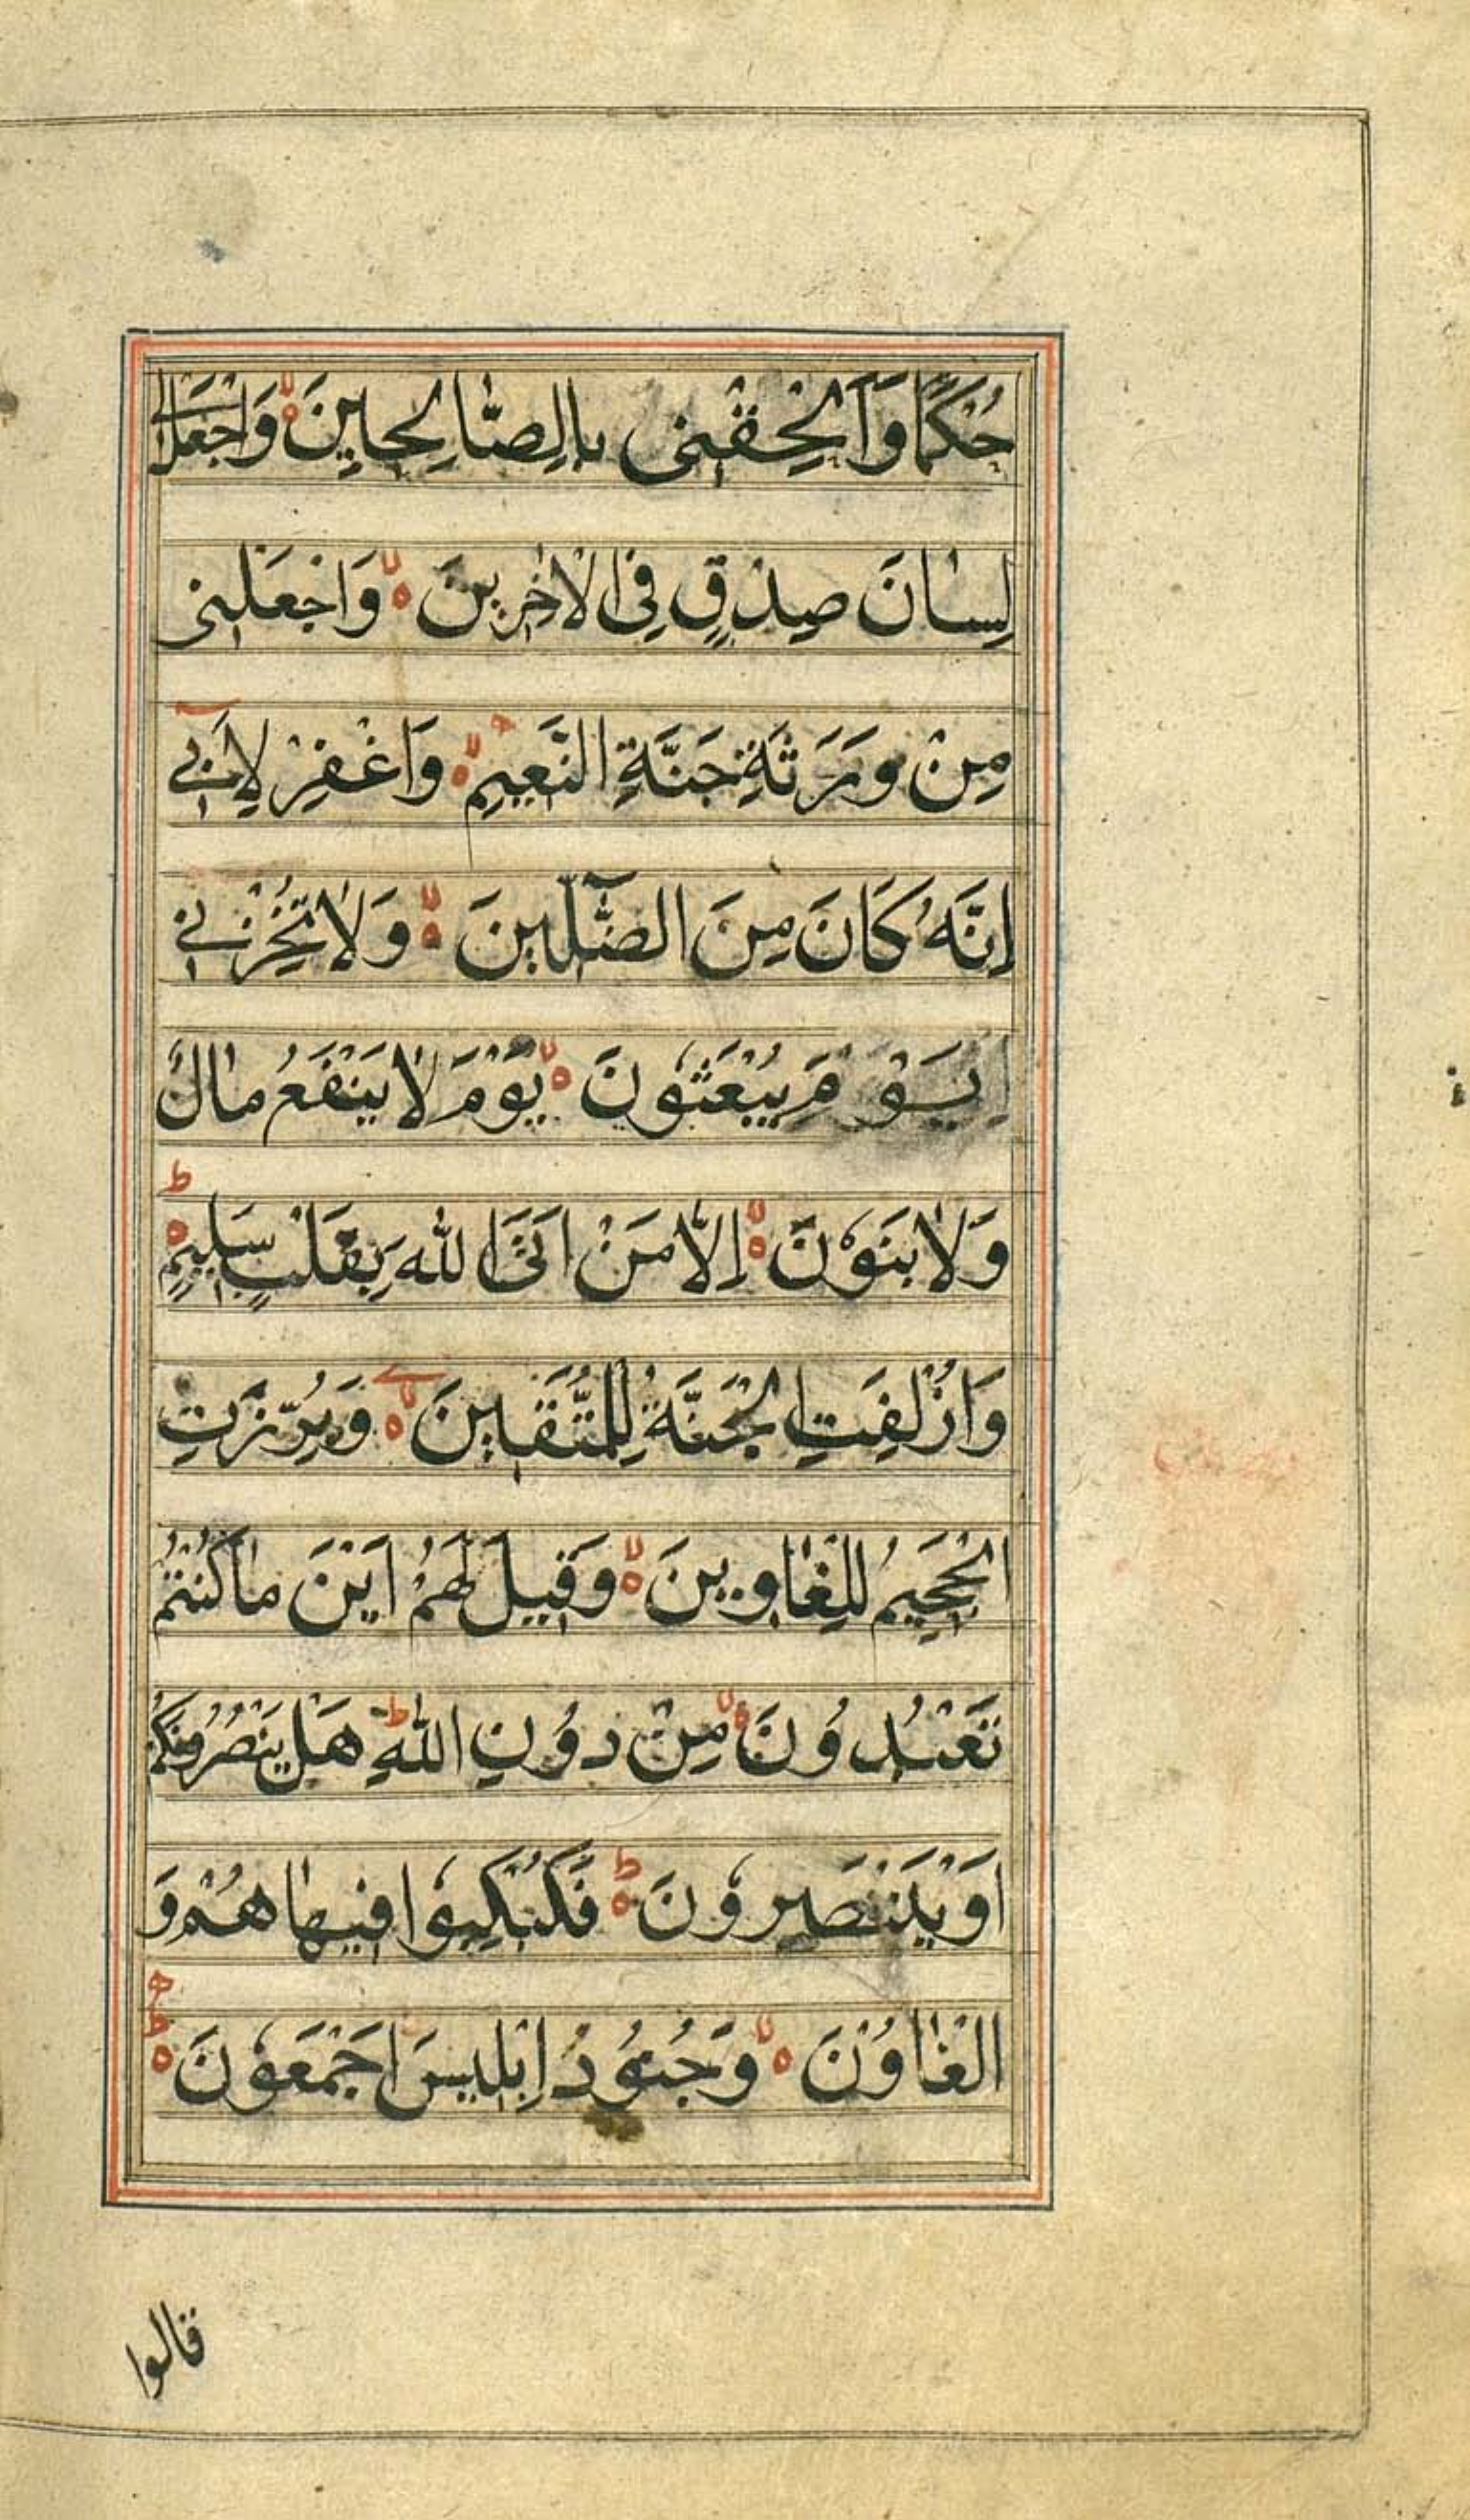 حُكْمًا وَاَلْحِقْنِى بِالصَّالِحِينَ وَاجْعَلْ لِى
لِسَانَ صِدْقٍ فِى الْاٰخِرِينَ وَاجْعَلْنِى
مِنْ وَرَثَةِ جَنَّةِ النَّعِيمِ وَاغْفِرْ لِاَبِى
اِنَّهُ كَانَ مِنَ الضَّآلِّينَ وَلَا تُخْزِنِى
يَوْمَ يُبْعَثُونَ يَوْمَ لَا يَنْفَعُ مَالٌ
وَلَا بَنُونَ اِلَّا مَنْ اَتَى اللهَ بِقَلْبٍ سَلِيمٍ
وَاُزْلِفَتِ الْجَنَّةُ لِلْمُتَّقِينَ وَبُرِّزَتِ
الْجَحِيمُ لِلْغَاوِينَ وَقِيلَ لَهُمْ اَيْنَ مَا كُنْتُمْ
تَعْبُدُونَ مِنْ دُونِ اللهِ هَلْ يَنْصُرُونَكُمْ
اَوْ يَنْتَصِرُونَ فَكُبْكِبُوا فِيهَا هُمْ وَ
الْغَاوُنَ وَجُنُودُ اِبْلِيسَ اَجْمَعُونَ
قالوا